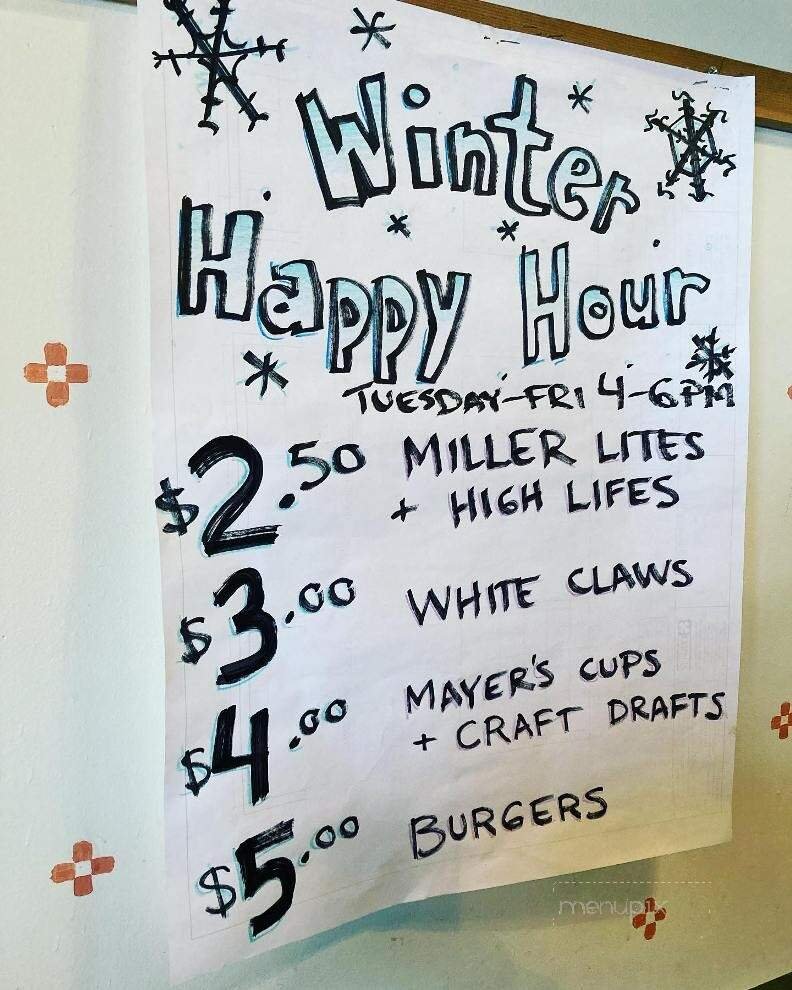 Winter
Happy Hour
TUESDAY-FRI 4-6PM
$2.50 MILLER LITES
+ HIGH LIFES
$3.00 WHITE CLAWS
$4.00 MAYER'S CUPS
+ CRAFT DRAFTS
$5.00 BURGERS
menupix